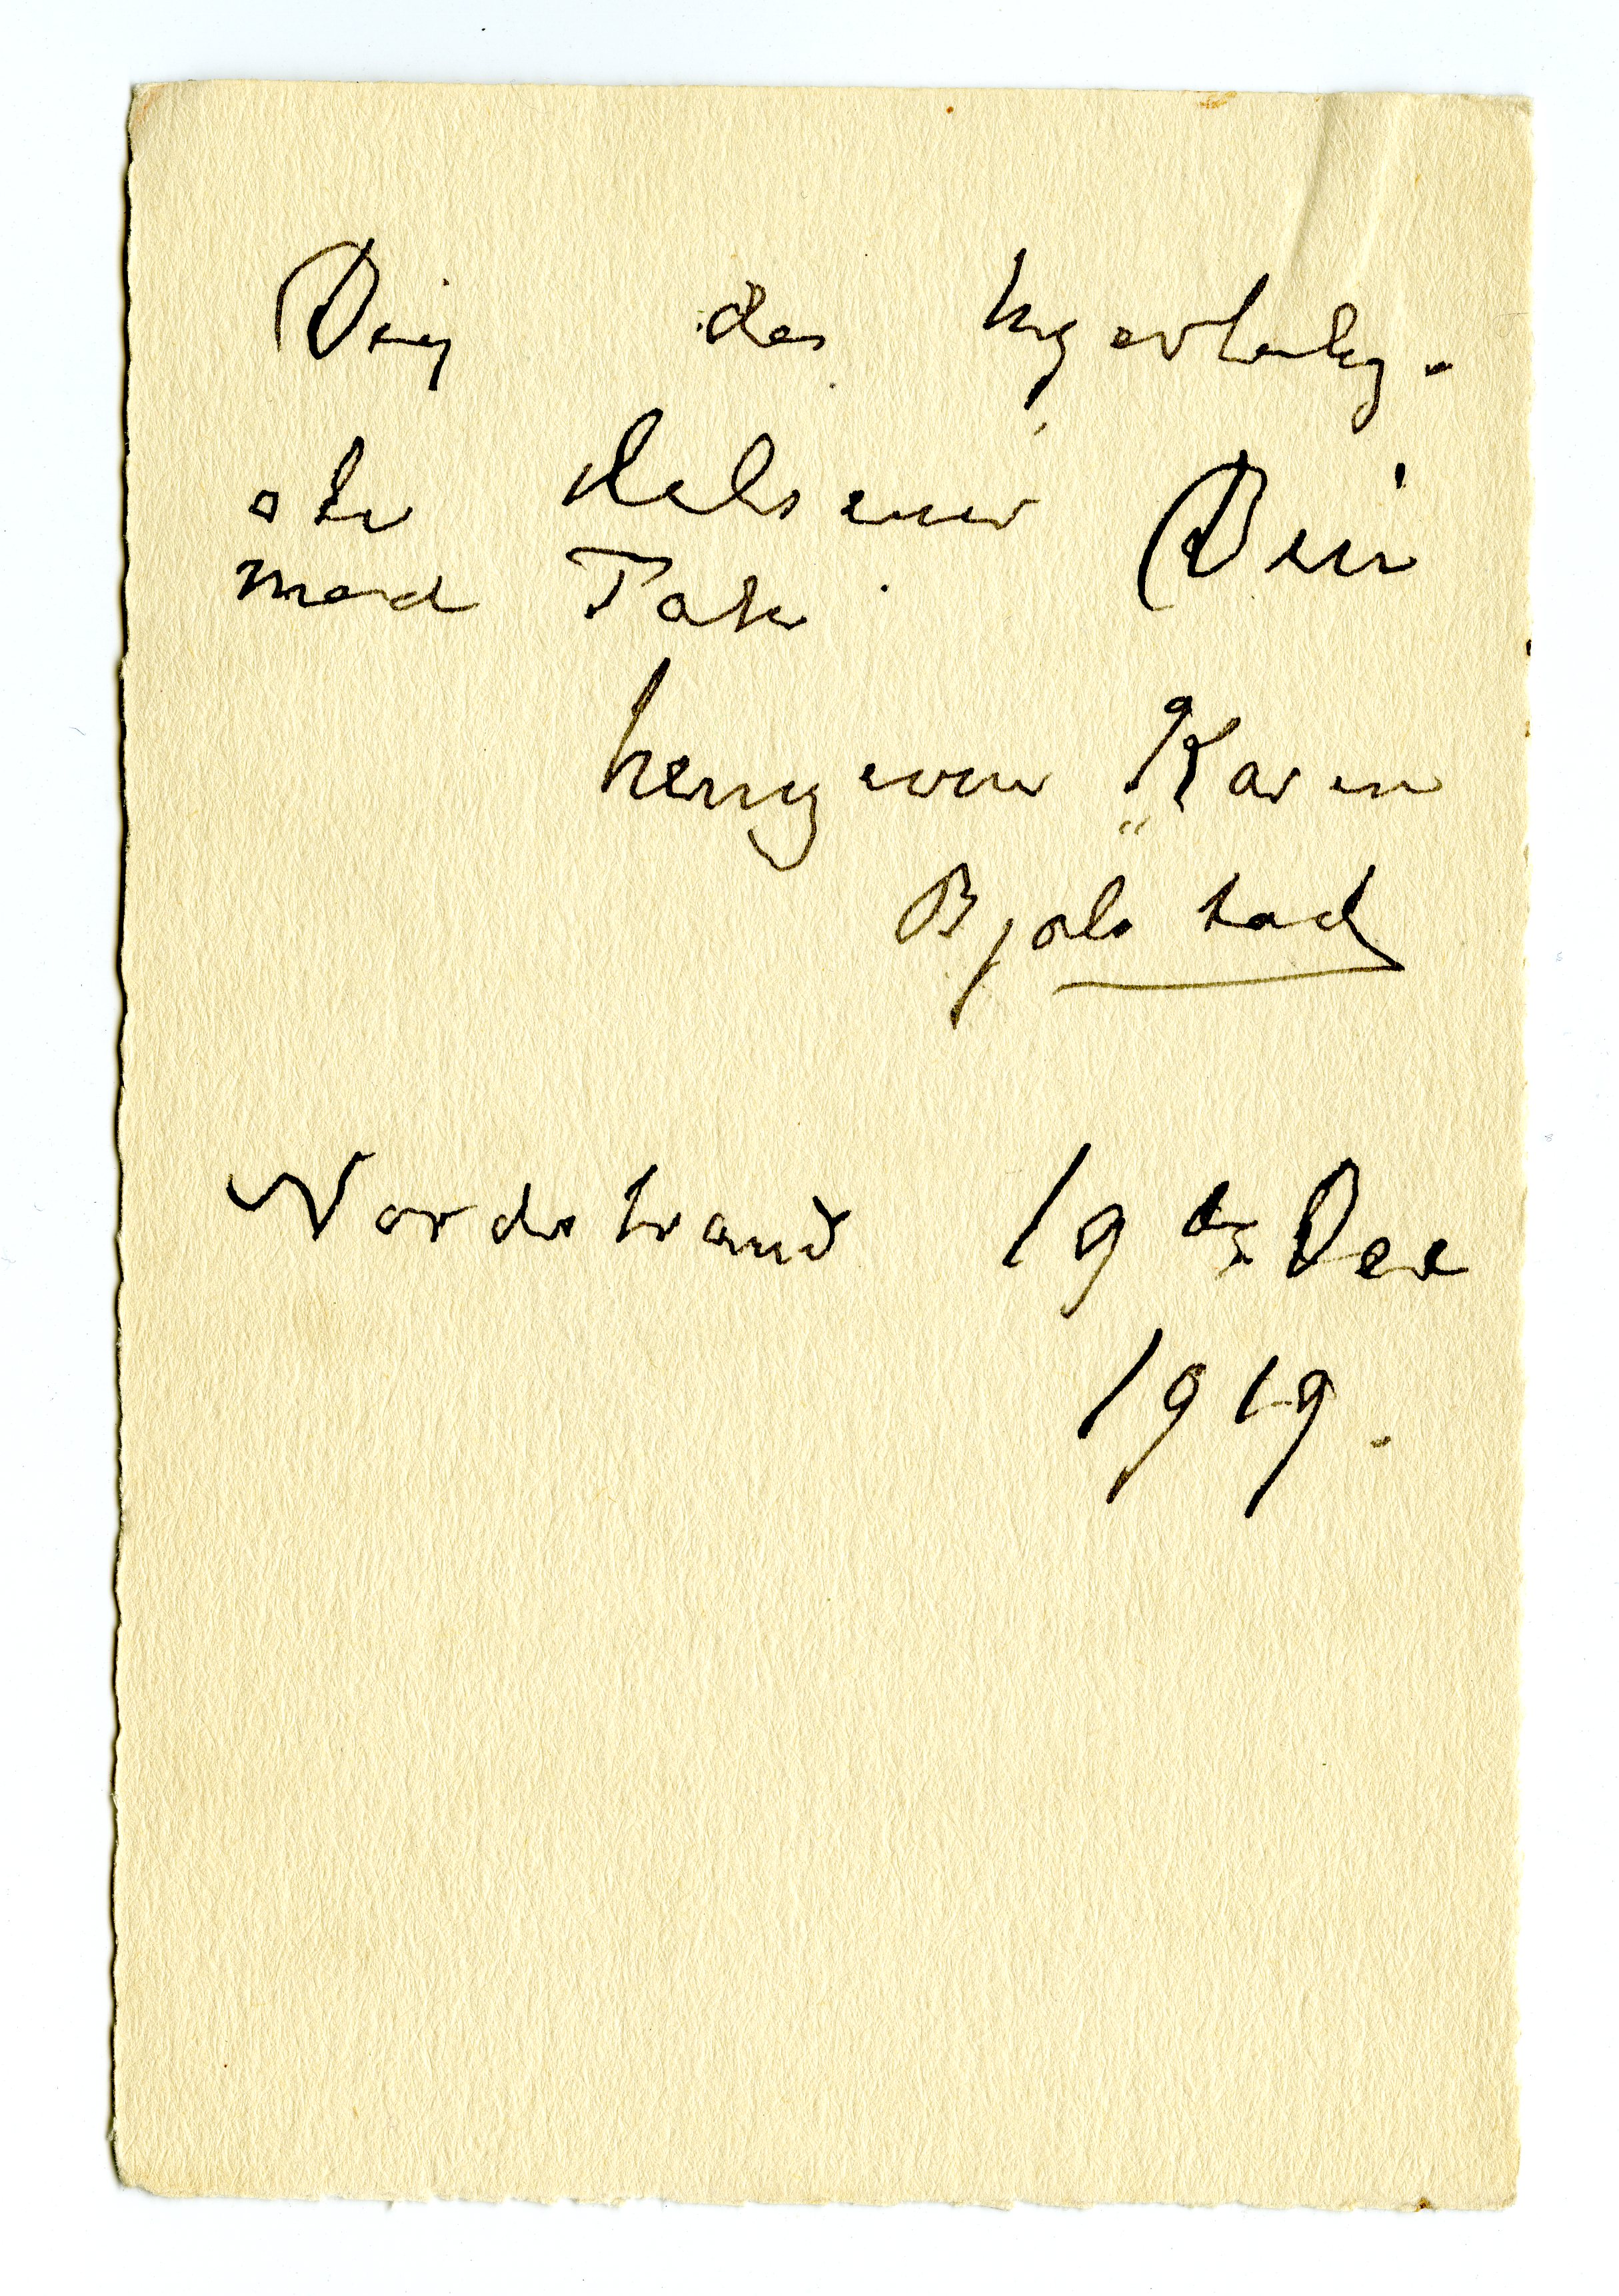 Dig de hjertelig-
ste Helsener Din
med Tak
hengivne Karen
Bjølstad
Nordstrand 19de Dec
1919.